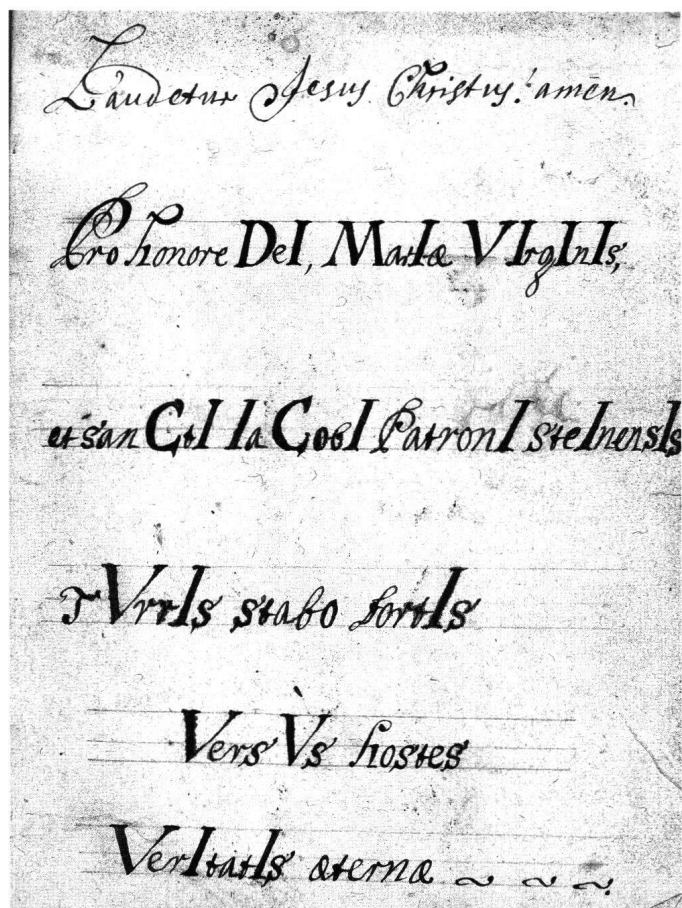 Laudetur Jesus Christus! amen.
Pro honore DeI, MarIæ VIrgInIs,
et san CtI Ia CobI PatronI steInensIs
TVrrIs stabo fortIs
VersVs hostes
VerItatIs æternæ ~ ~ ~.